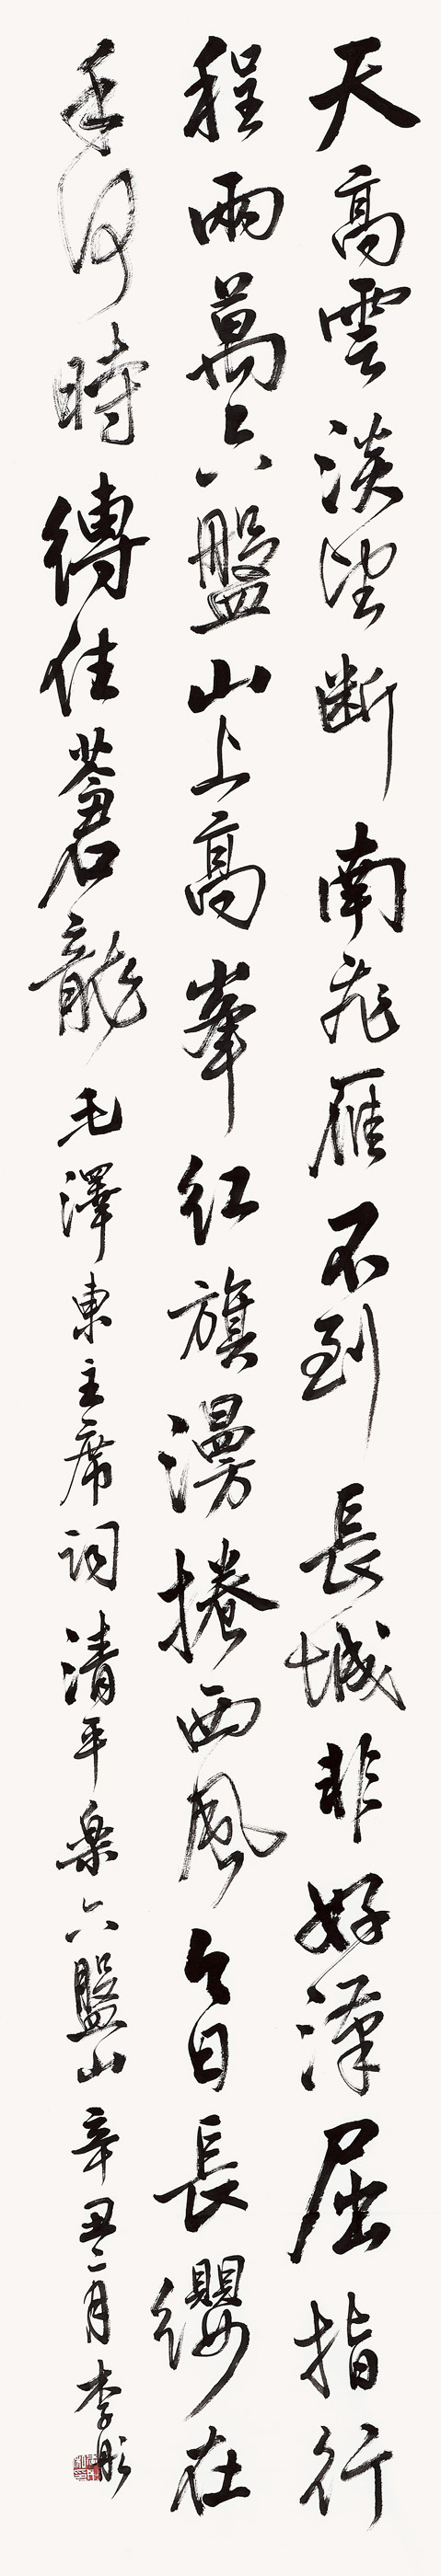 天高雲淡望斷南飛雁不到長城非好漢屈指行
程兩萬六盤山上高峯紅旗漫捲西風今日長纓在
手何時縛住蒼龍毛澤東主席詞清平樂六盤山辛丑二月李彤